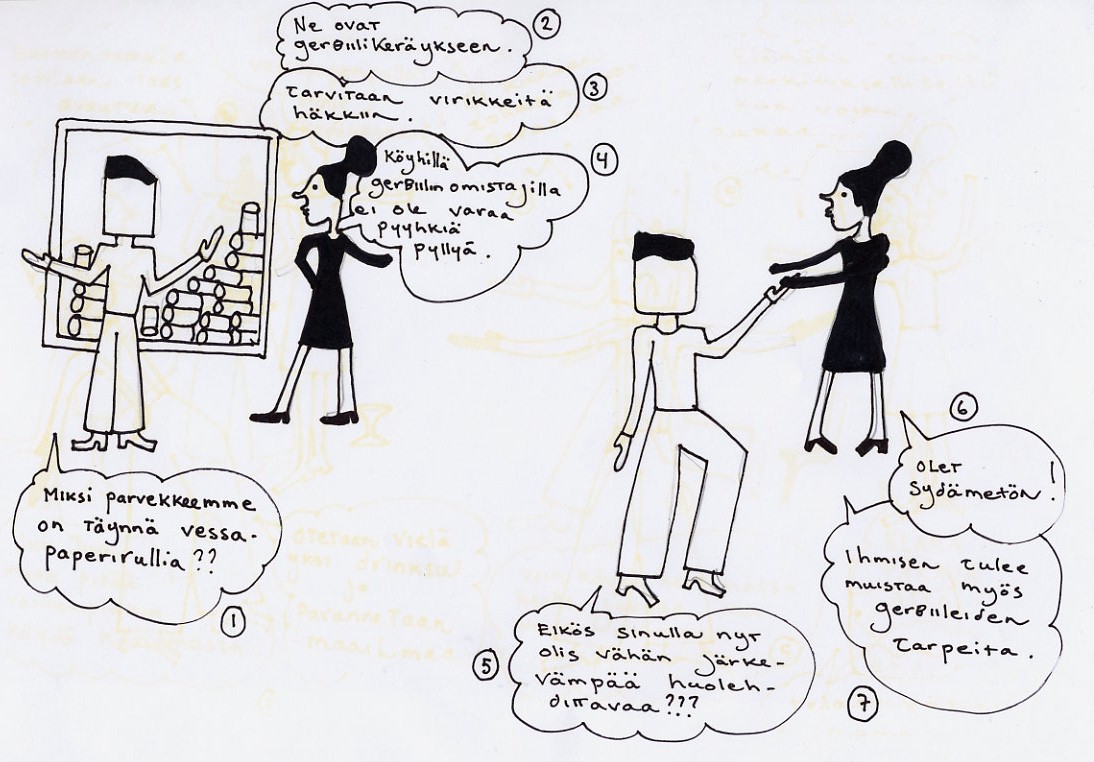 Miksi parvekkeemme
on täynnä vessa-
paperirullia ??
1
Ne ovat
gerbiilikeräykseen.
2
Tarvitaan virikkeitä
häkkiin.
3
Köyhillä
gerbiilin omistajilla
ei ole varaa
pyyhkiä
pyllyä.
4
Eikös sinulla nyt
olis vähän järke-
vämpää huoleh-
dittavaa ???
5
Olet
sydämetön!
6
Ihmisen tulee
muistaa myös
gerbiileiden
tarpeita.
7
otetaan vielä
yksi drinksu
ja
parannetaan
maailmaa